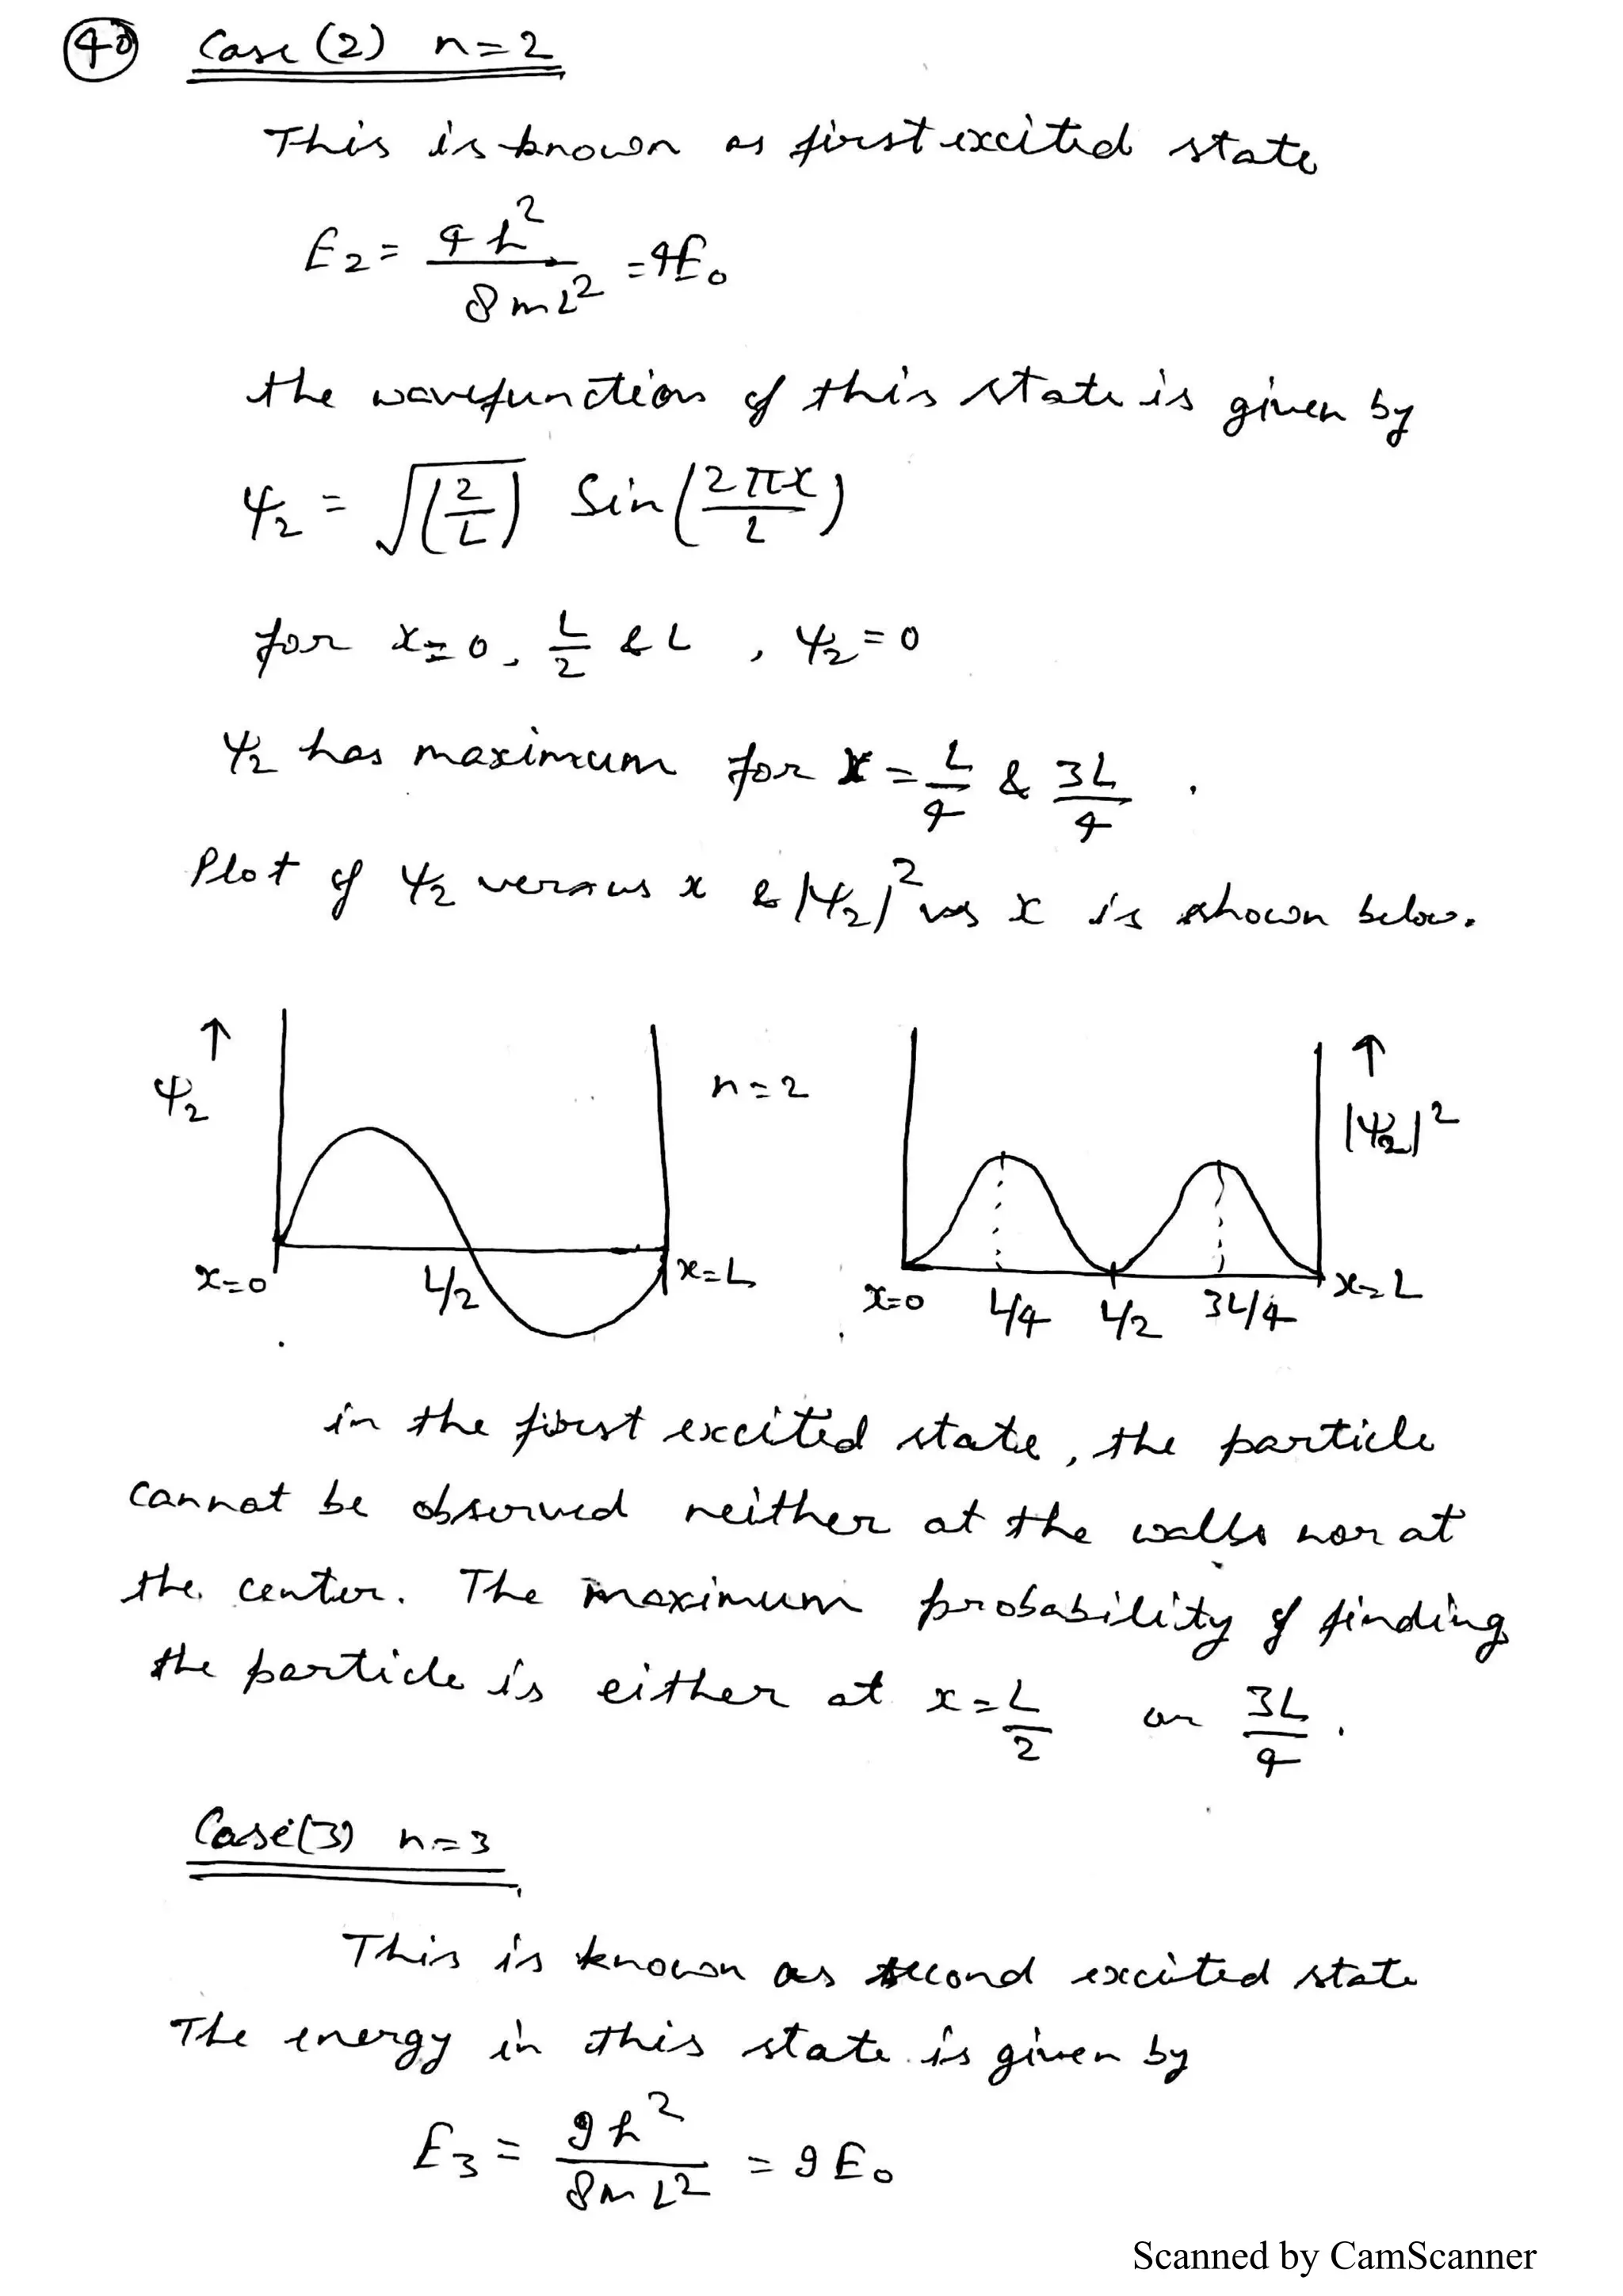 40 Case (2) n=2
This is known as first excited state
E₂ = 4h²/8mL² = 4E₀
the wavefunction of this state is given by
ψ₂ = √(2/L) Sin(2πx/L)
for x=0, L/2 & L , ψ₂=0
ψ₂ has maximum for x = L/4 & 3L/4 .
Plot of ψ₂ versus x & |ψ₂|² vs x is shown below.
↑ ψ₂ n=2 ↑ |ψ₂|²
x=0 L/2 x=L x=0 L/4 L/2 3L/4 x=L
in the first excited state, the particle
cannot be observed neither at the walls nor at
the center. The maximum probability of finding
the particle is either at x=L/2 or 3L/4 .
Case(3) n=3
This is known as second excited state
The energy in this state is given by
E₃ = 9h²/8mL² = 9E₀
Scanned by CamScanner